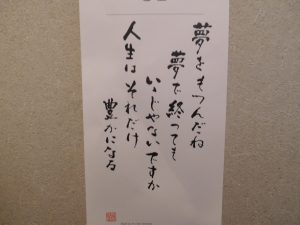 夢をもつんだね
夢で終っても
いゝじゃないですか
人生はそれだけ
豊かになる